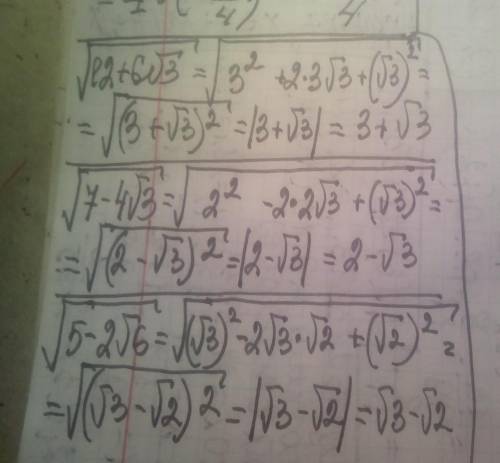 √12+6√3 = √3² +2·3√3+(√3)² =
= √(3+√3)² = |3+√3| = 3+√3
√7-4√3 = √2² -2·2√3+(√3)² =
= √(2-√3)² = |2-√3| = 2-√3
√5-2√6 = √(√3)²-2√3·√2+(√2)² =
= √(√3-√2)² = |√3-√2| = √3-√2